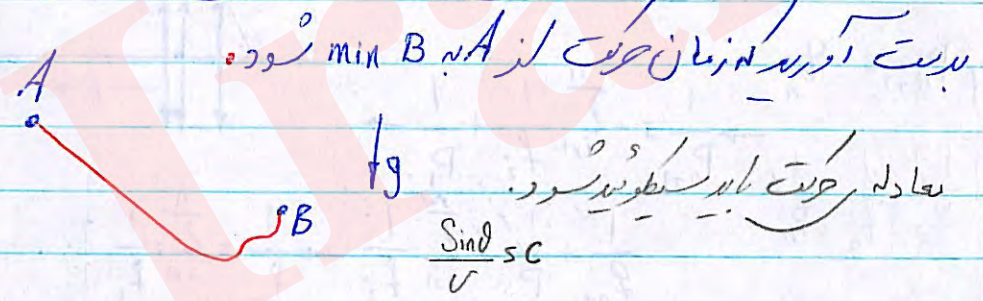 بدست آورید که زمان حرکت از A به B min شود.
A
g
معادله حرکت باید سیکلوئید شود.
B
Sinθ/v = C